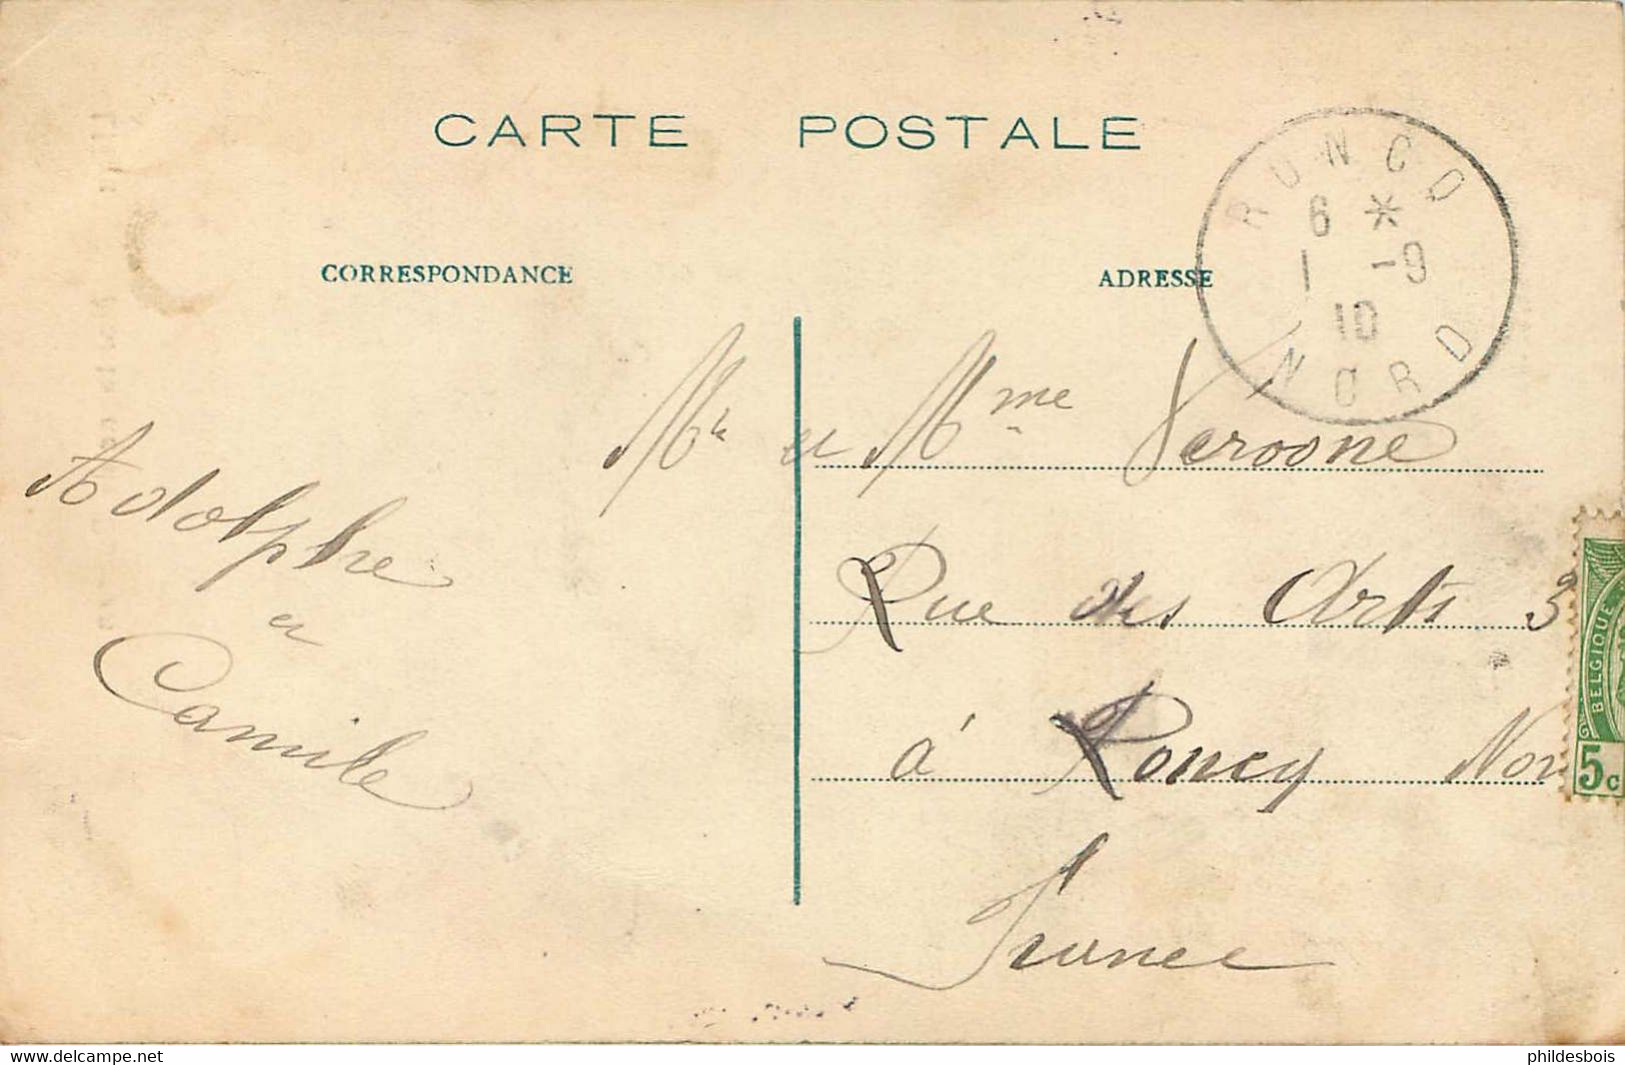 CARTE POSTALE
RONCQ
6 *
1 -9
10
NORD
CORRESPONDANCE
ADRESSE
Mr et Mme Veroone
Rue des Arts 3
à Roncq Nor
France
Adolphe
et
Camile
BELGIQUE
5c
www.delcampe.net
phildesbois